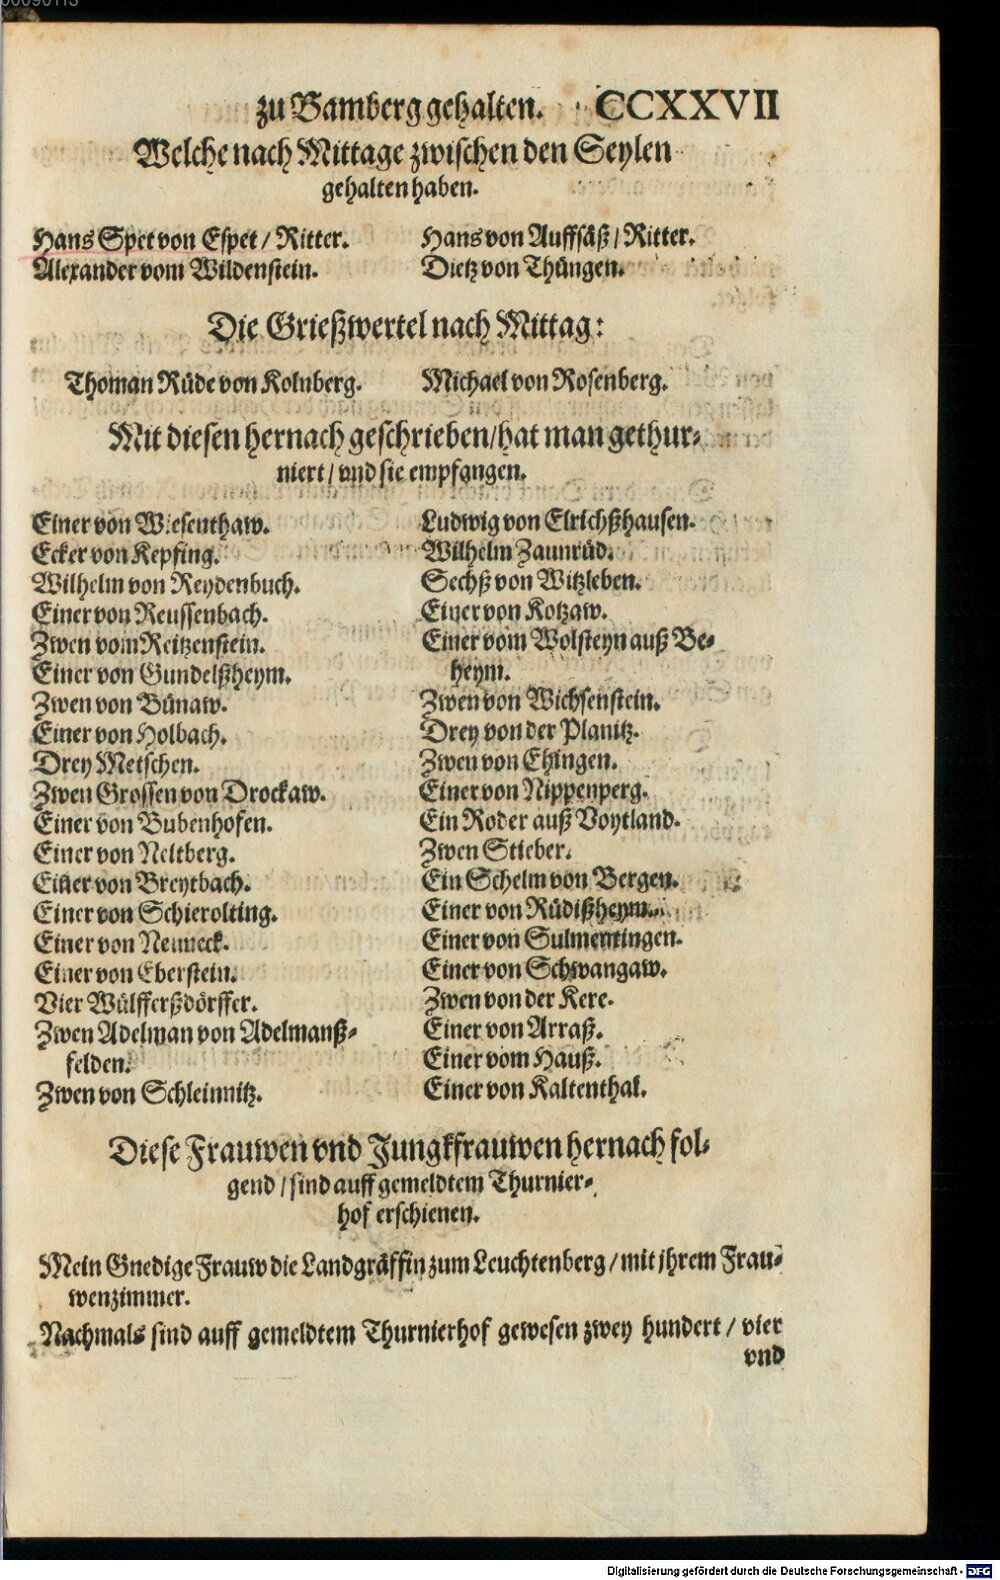 zu Bamberg gehalten. CCXXVII
Welche nach Mittage zwischen den Seylen
gehalten haben.
Hans Spet von Espet / Ritter.
Alexander vom Wildenstein.
Hans von Auffsäß / Ritter.
Dietz von Thüngen.
Die Grießwertel nach Mittag:
Thoman Rüde von Kolnberg.
Michael von Rosenberg.
Mit diesen hernach geschrieben / hat man gethur-
niert / vnd sie empfangen.
Einer von Wiesenthaw.
Ecker von Kepfing.
Wilhelm von Reydenbuch.
Einer von Reussenbach.
Zwen vom Reitzenstein.
Einer von Gundelßheym.
Zwen von Bünaw.
Einer von Holbach.
Drey Metschen.
Zwen Grossen von Drockaw.
Einer von Bubenhofen.
Einer von Neitberg.
Einer von Breytbach.
Einer von Schierolting.
Einer von Neuneck.
Einer von Eberstein.
Vier Wülfferßdörffer.
Zwen Adelman von Adelmanß-
felden.
Zwen von Schleinnitz.
Ludwig von Elrichßhausen.
Wilhelm Zaunrüd.
Sechß von Witzleben.
Einer von Kotzaw.
Einer vom Wolsteyn auß Be-
heym.
Zwen von Wichsenstein.
Drey von der Planitz.
Zwen von Ehingen.
Einer von Nippenperg.
Ein Roder auß Voytland.
Zwen Stieber.
Ein Schelm von Bergen.
Einer von Rüdißheym.
Einer von Sulmentingen.
Einer von Schwangaw.
Zwen von der Kere.
Einer von Arraß.
Einer vom Hauß.
Einer von Kaltenthal.
Diese Frauwen vnd Jungkfrauwen hernach fol-
gend / sind auff gemeldtem Thurnier-
hof erschienen.
Mein Gnedige Frauw die Landgräffin zum Leuchtenberg / mit jhrem Frau-
wenzimmer.
Nachmals sind auff gemeldtem Thurnierhof gewesen zwey hundert / vier
vnd
Digitalisierung gefördert durch die Deutsche Forschungsgemeinschaft - DFG